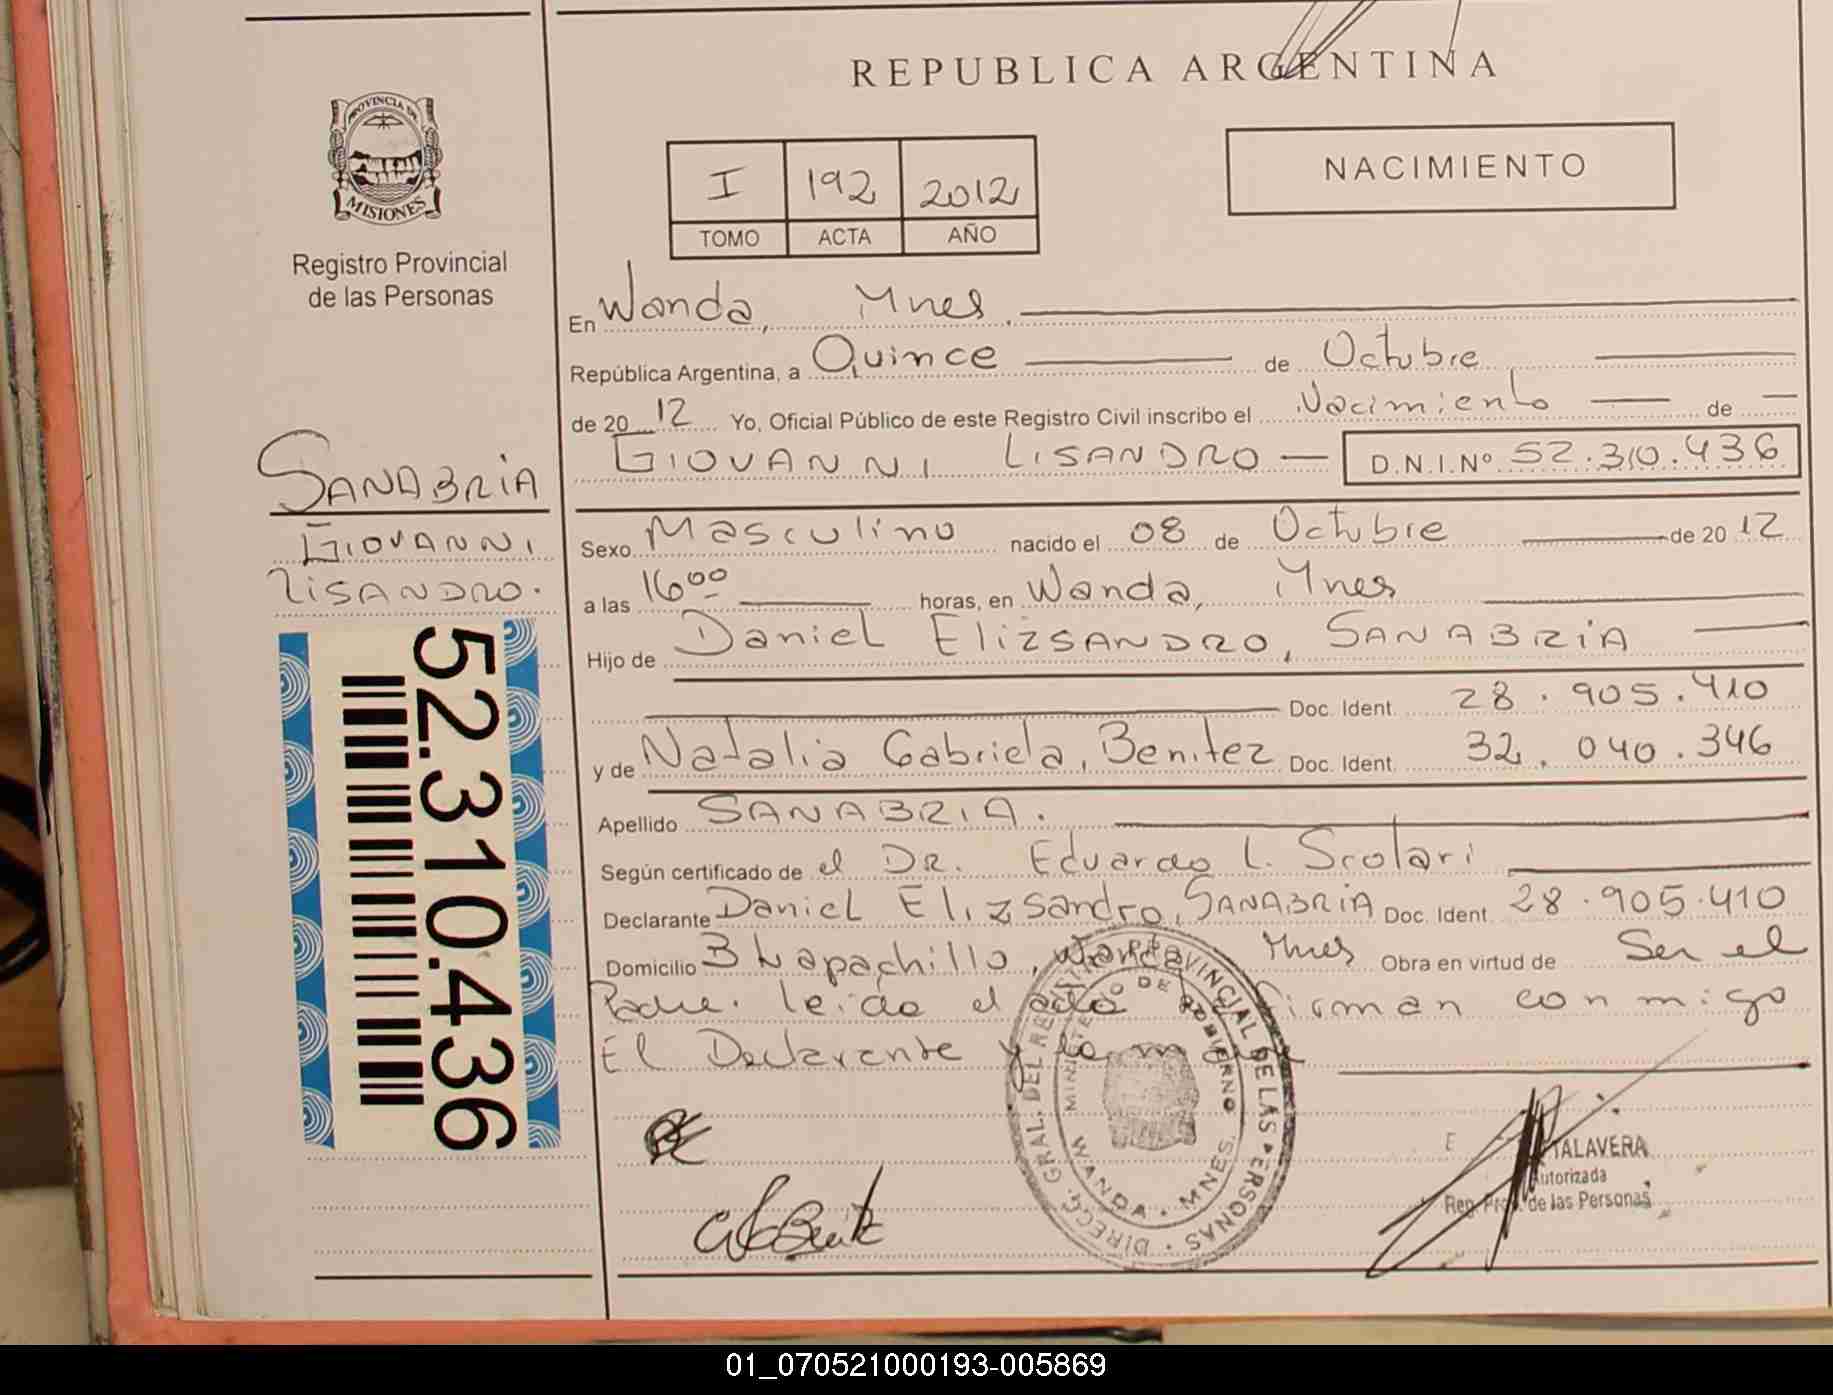 REPUBLICA ARGENTINA
PROVINCIA DE
MISIONES
Registro Provincial
de las Personas
NACIMIENTO
I 192 2012
TOMO ACTA AÑO
En Wanda, Mnes.
República Argentina, a Quince de Octubre
de 20 12 Yo, Oficial Público de este Registro Civil inscribo el Nacimiento de
GIOVANNI LISANDRO D.N.I.Nº 52.310.436
SANABRIA
GIOVANNI
LISANDRO.
52.310.436
Sexo Masculino nacido el 08 de Octubre de 20 12
a las 16 00 horas, en Wanda, Mnes
Hijo de Daniel Elizsandro, SANABRIA
Doc. Ident. 28.905.410
y de Natalia Gabriela, Benitez Doc. Ident. 32.040.346
Apellido SANABRIA.
Según certificado de el DR. Eduardo L. Scolari
Declarante Daniel Elizsandro, SANABRIA Doc. Ident. 28.905.410
Domicilio B Lapachillo, Wanda, Mnes Obra en virtud de Ser el
Padre. leido el acta la firman conmigo
El Declarante y la madre
DIRECC. GRAL. DEL REGISTRO PROVINCIAL DE LAS PERSONAS
MINISTERIO DE GOBIERNO
WANDA - MNES
TALAVERA
Autorizada
Reg. Prov. de las Personas
01_070521000193-005869